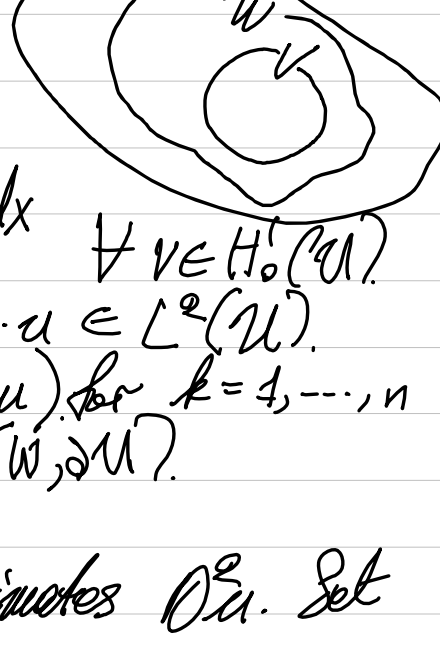 W
V
dx
∀ v ∈ H₀¹(U).
· u ∈ L²(U).
u) for k = 1, ---, n
W, ∂U).
imates D²u. Set